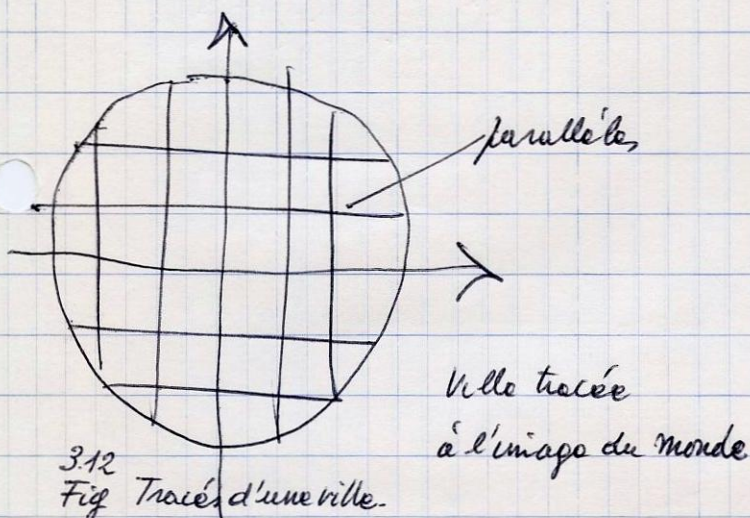 parallèles
Ville tracée
à l'image du monde
3.12
Fig Tracés d'une ville.